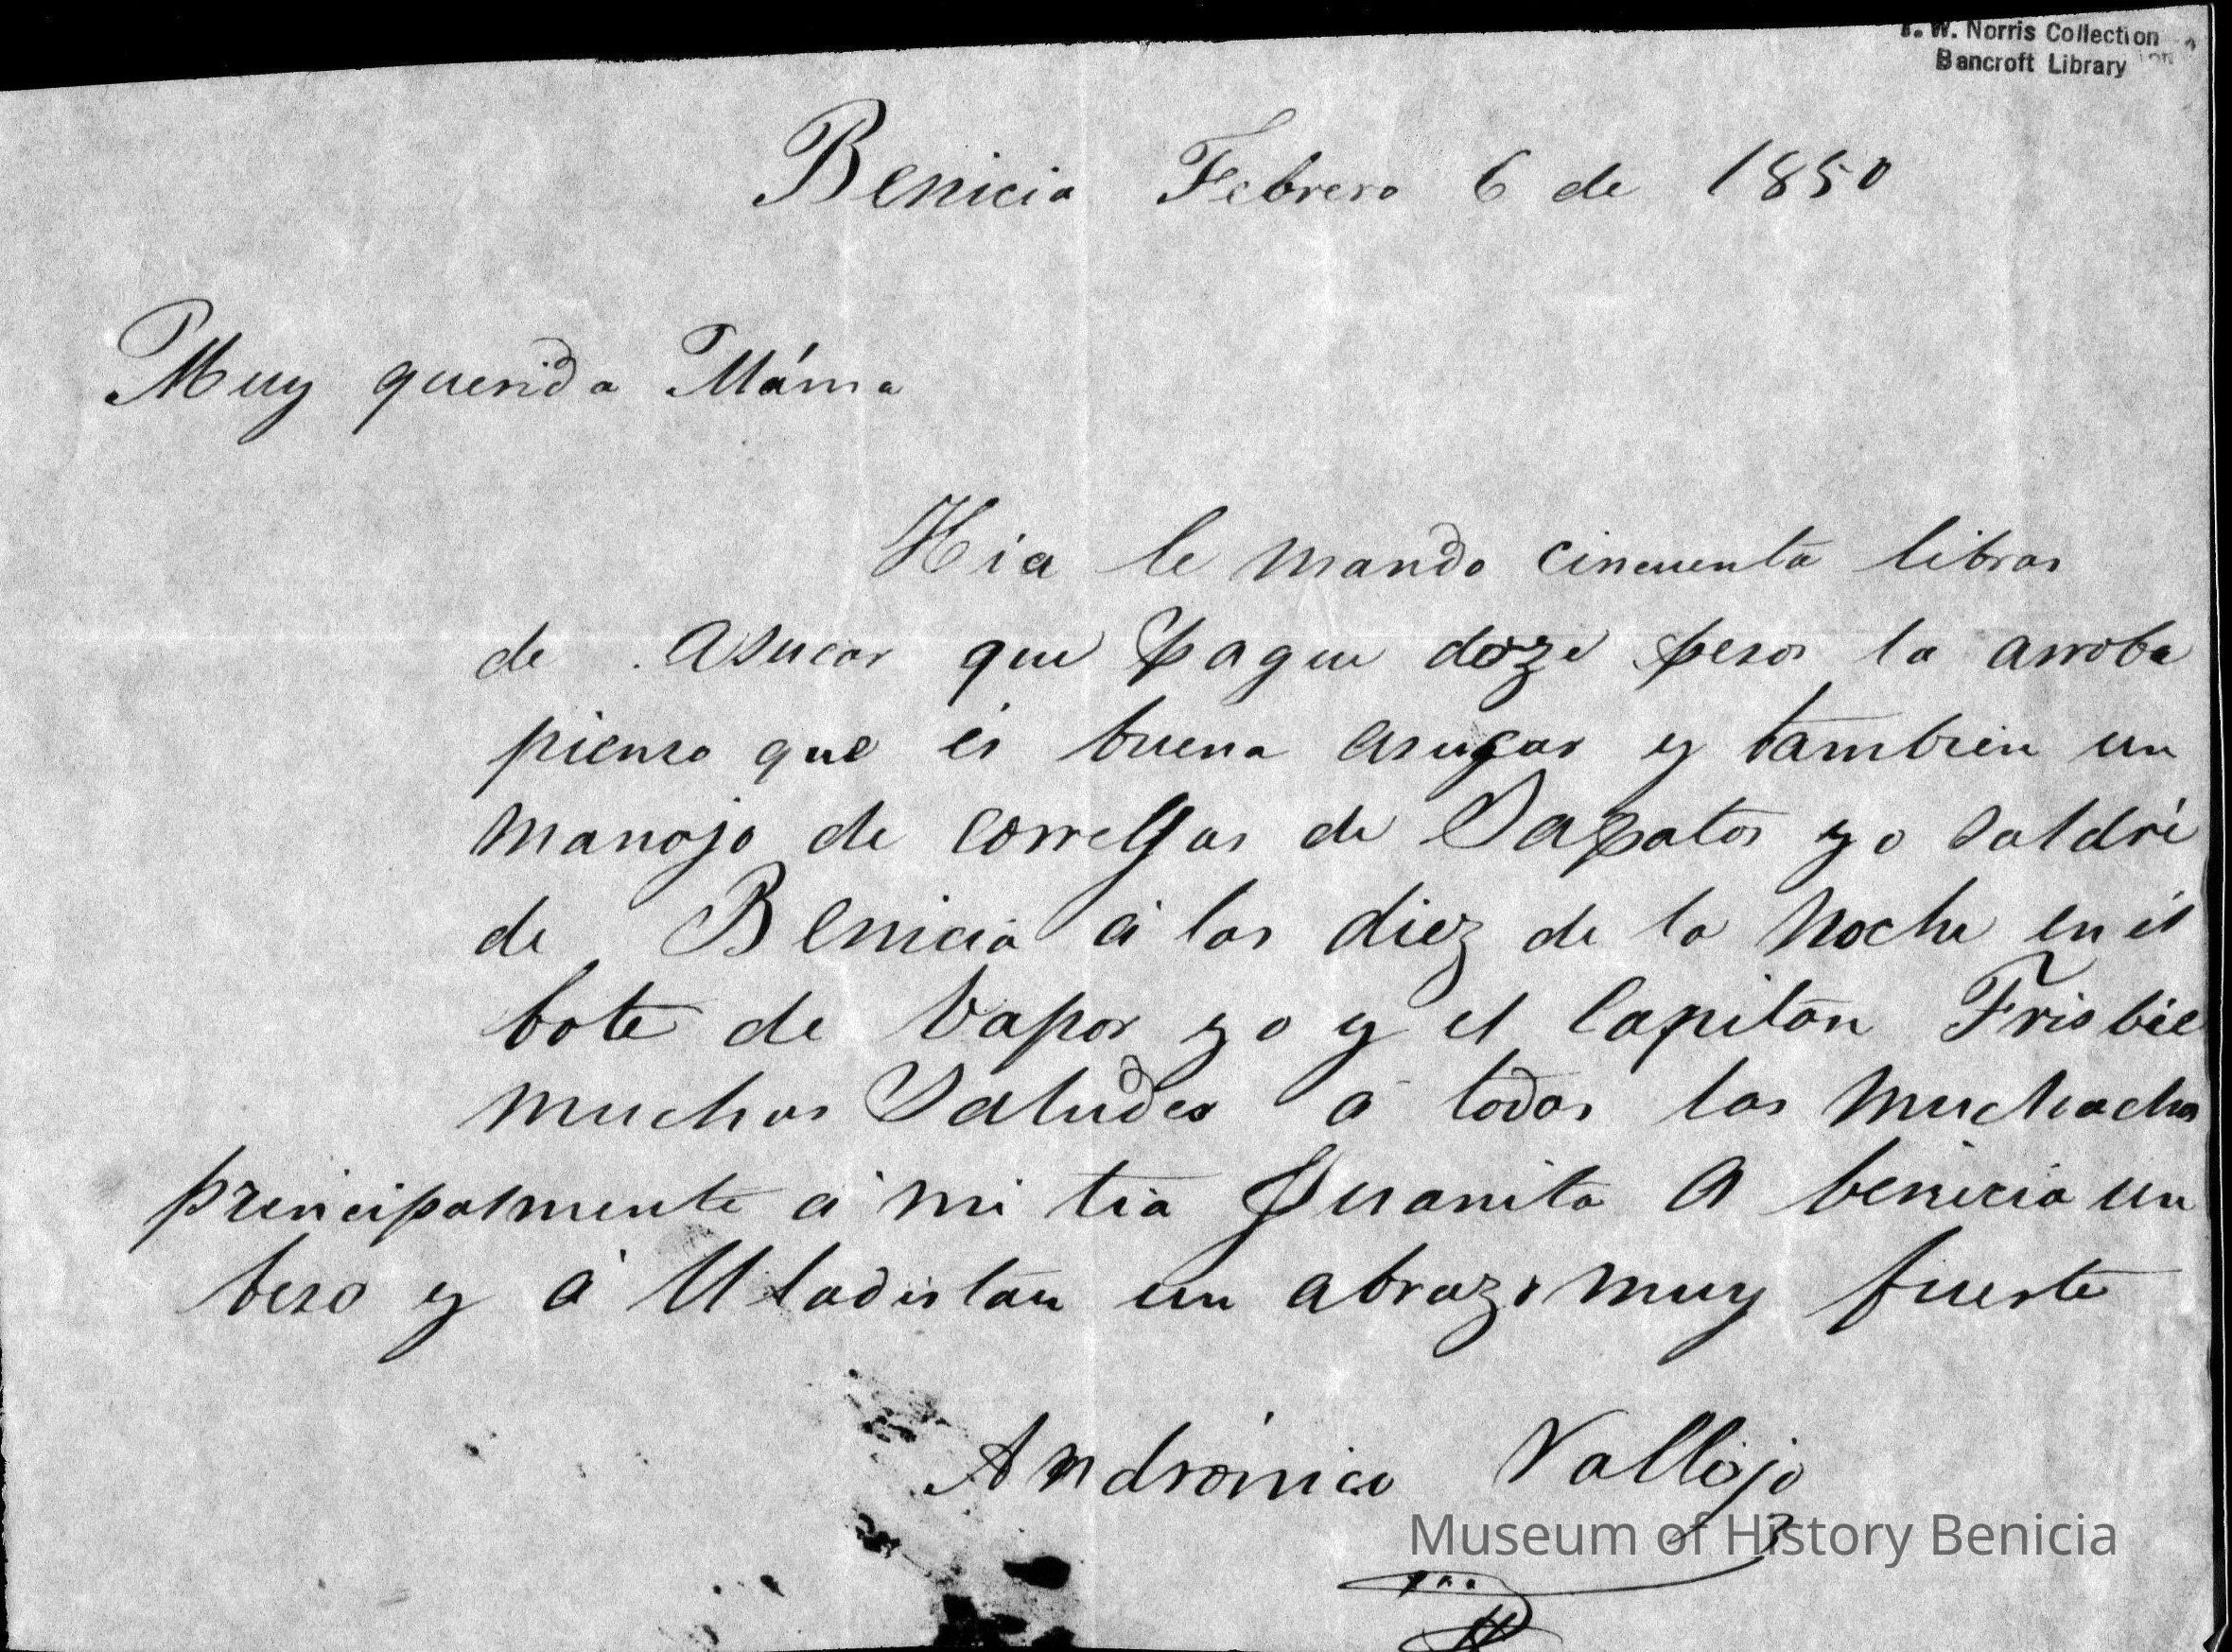 T. W. Norris Collection
Bancroft Library
Benicia Febrero 6 de 1850
Muy querida Máma
Hia le mando cincuenta libras
de asucar que pague doze pesos la arroba
pienso que és buena asugar y tambien un
manojo de correllas de Sapatos yo saldré
de Benicia á las diez de la noche en él
bote de vapor yo y el Capitan Frisbie
muchos Saludes á todos los muchachos
principalmente á mi tia Juanita A benicia un
beso y á Uladislau un abrazo muy fuerte
Andrónico Vallejo
Museum of History Benicia